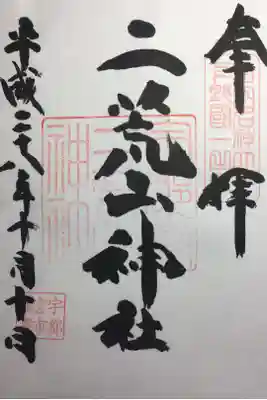 奉拝
二荒山神社
平成二十八年十月十日